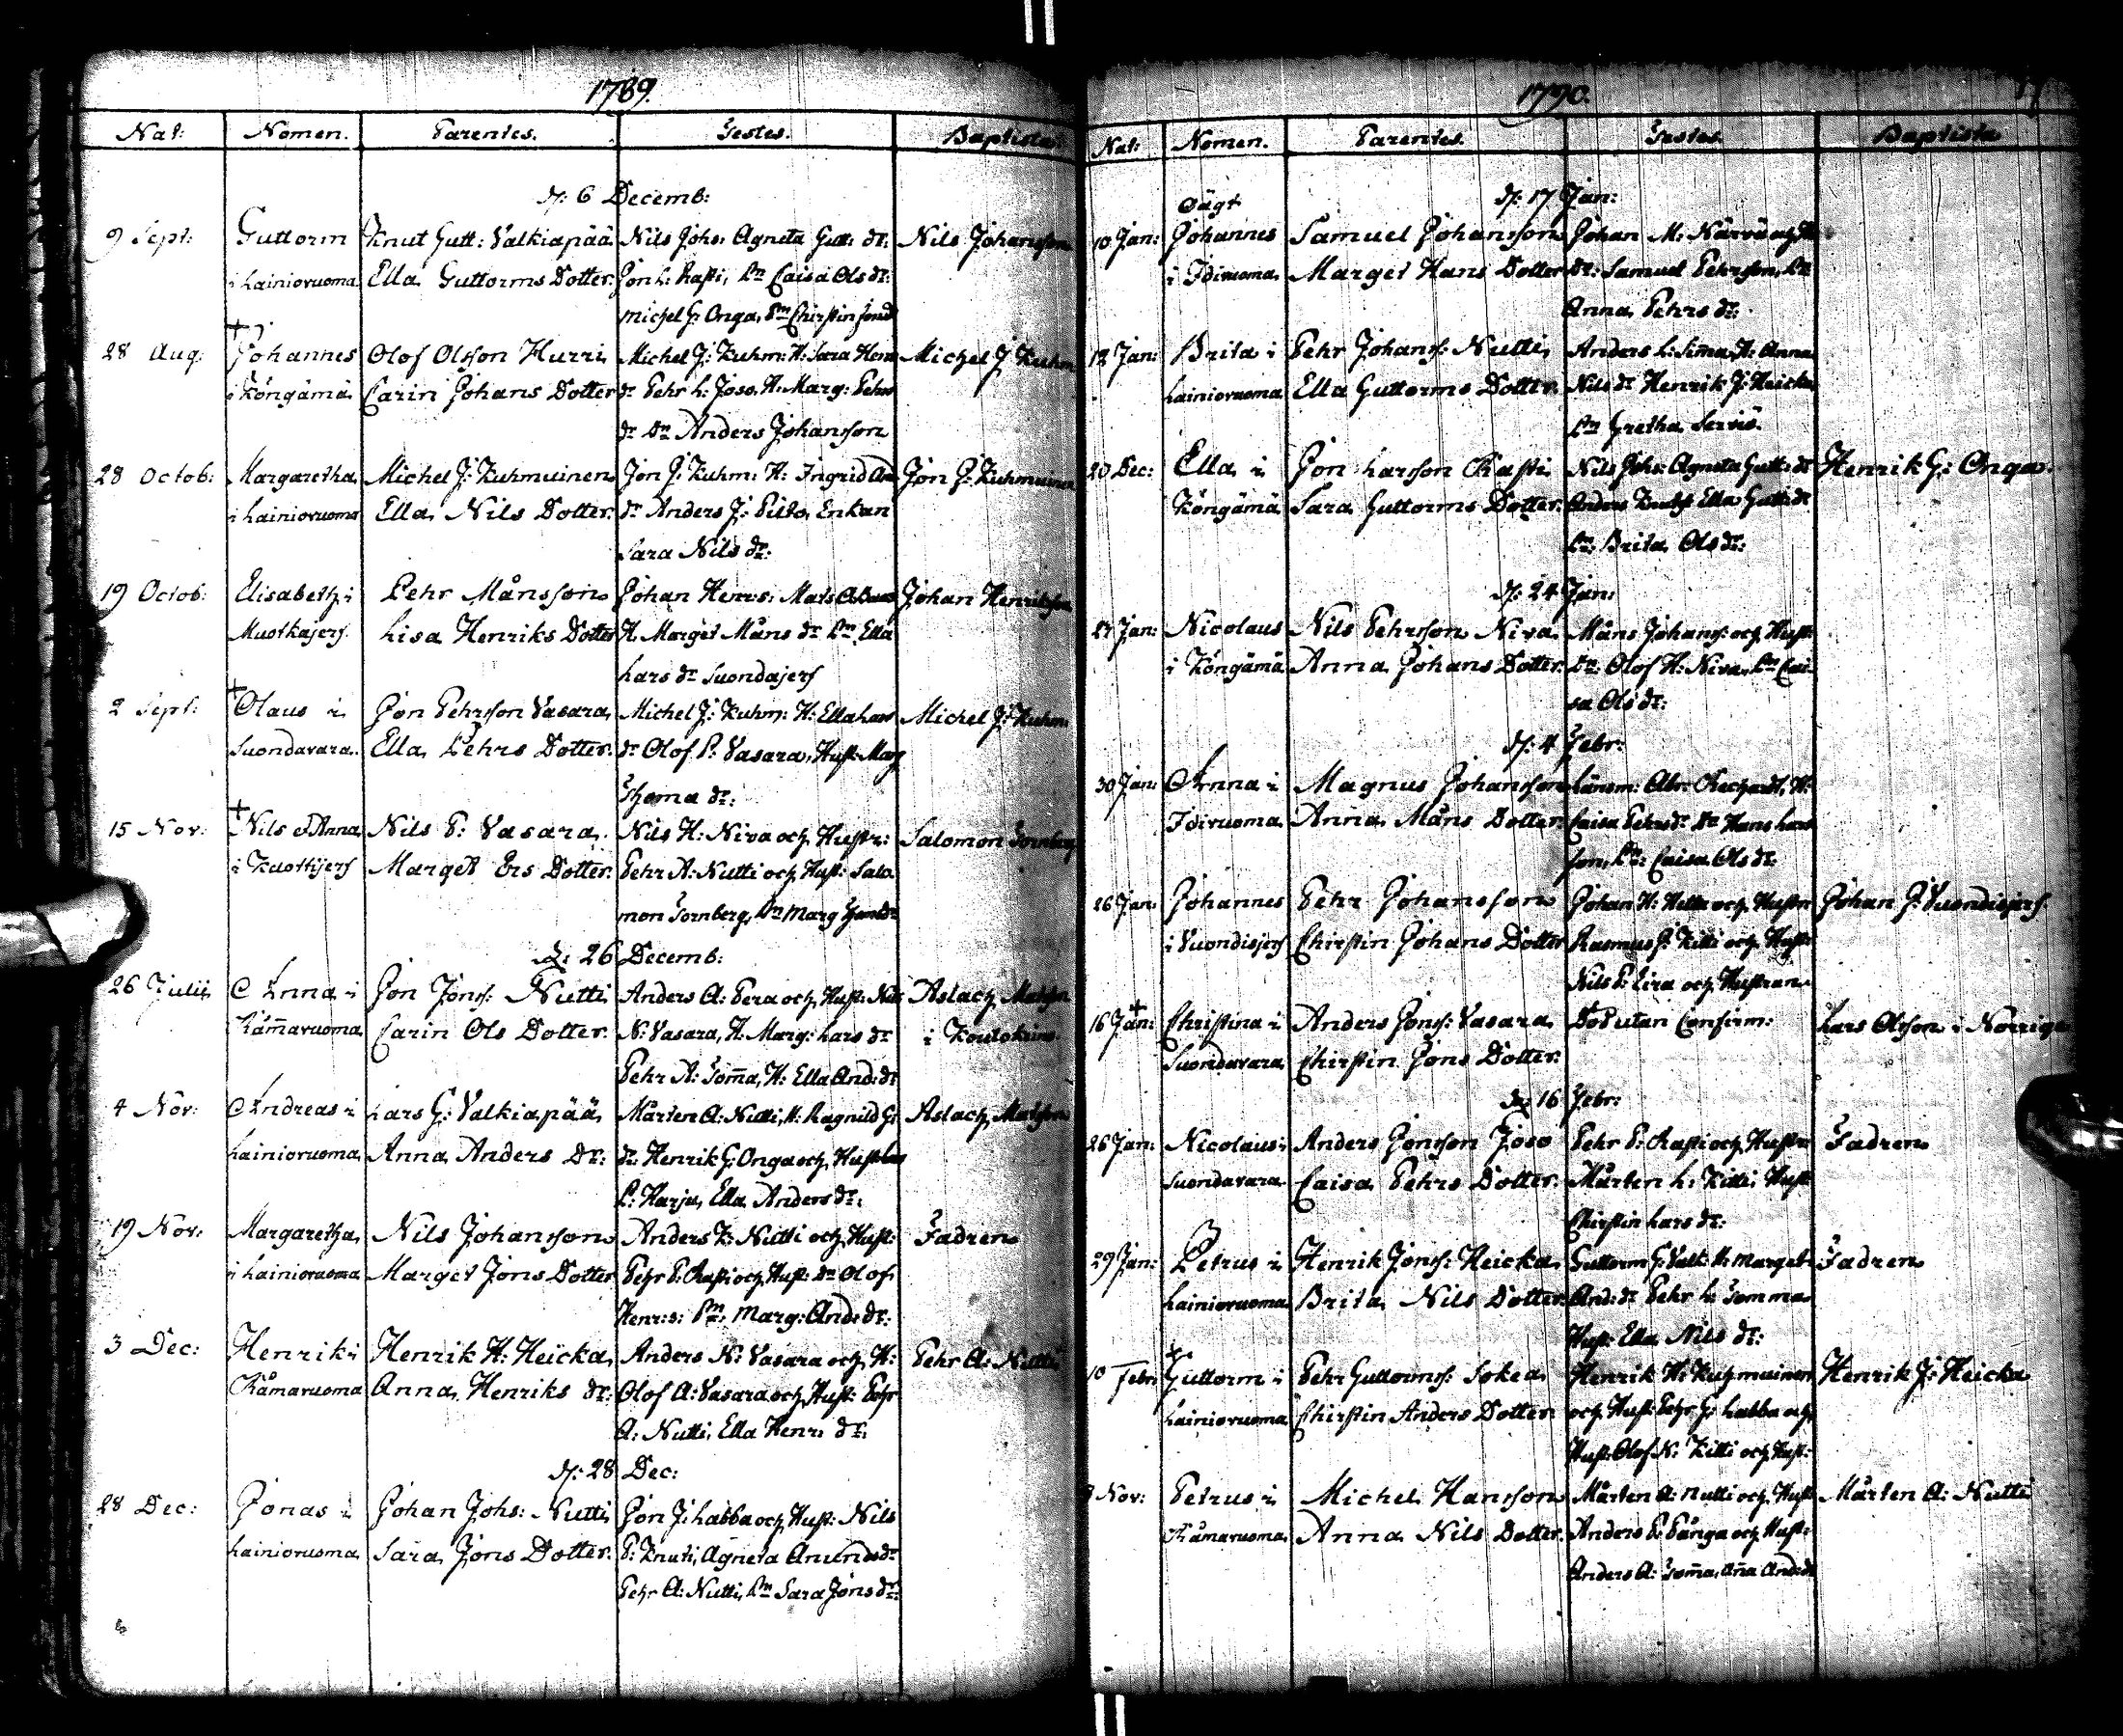 1789.
Nat: Nomen. Parentes. Testes. Baptista.
d. 6 Decemb:
9 Sept: Guttorm Knut Gutt: Valkiapää Nils Johs: Agneta Gutt: dr: Nils Johansson
i Lainiovuoma Ella Guttorms Dotter. Jon L: Rasti, Pn Caisa Ols dr:
Michel G: Onga, Pn Chirstin
28 Aug: Johannes Olof Olsson Hurri Michel J: Kuhm: H: Sara Henr Michel J: Kuhm
i Köngämä Carin Johans Dotter dr Pehr L: Joso, H: Marg: Pehrs
dr Dn Anders Johansson
28 Octob: Margaretha Michel J: Kuhmuinen Jon J: Kuhm: H: Ingrid And Jon J: Kuhmuinen
i Lainiovuoma Ella Nils Dotter. dr Anders J: Pilto, Enkan
Sara Nils dr:
19 Octob: Elisabeth i Pehr Månsson Johan Henrs: Mats Johan Henriksson
Muotkajerf Lisa Henriks Dotter H. Marget Måns dr Pn Ella
Lars dr Suondajerf
2 Sept: Olaus i Jon Pehrsson Vasara Michel J: Kuhm: H: Ella Lars Michel J: Kuhm:
Suondavara. Ella Pehrs Dotter. dr Olof P: Vasara, Hust: Marg
Thoma dr:
15 Nov: Nils & Anna Nils P: Vasara. Nils H: Niva och Hustr: Salomon Tornberg
i Kuottijerf Marget Ers Dotter. Pehr A: Nutti och Hust: Salo
mon Tornberg, Pn Marg
d: 26 Decemb:
26 Julii Anna i Jon Jons: Nutti Anders A: Pera och Hust: Nils Aslach Matsson
Råmavuoma Carin Ols Dotter. N: Vasara, H: Marg: Lars dr i Koutokeino
Pehr A: Tom̄a, H: Ella And: dr
4 Nov: Andreas i Lars G: Valkiapää Mårten A: Nutti, H: Ragnild G: Aslach Matsson
Lainiovuoma Anna Anders Dr: dr: Henrik G: Onga och Hust: Lars
P: Harju, Ella Anders dr:
19 Nov: Margaretha Nils Johansson Anders K: Nutti och Hust: Fadren
i Lainiovuoma Marget Jons Dotter Pehr P: Rasti och Hust: Dn Olof
Henr:s: Pn: Marg: And: dr:
3 Dec: Henrik i Henrik H: Heicka Anders N: Vasara och H: Pehr A: Nutti
Råmavuoma Anna Henriks dr: Olof A: Vasara och Hust: Pehr
A: Nutti, Ella Henr: dr:
d: 28 Dec:
28 Dec: Jonas i Johan Johs: Nutti Jon J: Labba och Hust: Nils
Lainiovuoma Sara Jons Dotter. P: Knuti, Agneta Anunds dr
Pehr A: Nutti, Pn Sara Jons dr:
1790.
Nat: Nomen. Parentes. Testes. Baptista
d: 17 Jan:
Oägt
10 Jan: Johannes Samuel Johansson Johan M: Närvä
i Idivuoma Marget Hans Dotter Dr: Samuel Pehrsson, Pn
Anna Pehrs dr:
12 Jan: Brita i Pehr Johans: Nutti Anders L: Sim̄a, H: Anna
Lainiovuoma Ella Guttorms Dotter. Nils dr Henrik J: Heicka
Pn Gretha Servio.
20 Dec: Ella i Jon Larsson Rasti Nils Johs: Agneta Gutt: dr Henrik G: Onga.
Köngämä Sara Guttorms Dotter. Anders Ella Gutt: dr
Pn: Brita Ols dr:
d: 24 Jan:
Jan: Nicolaus Nils Pehrsson Niva Måns Johans: och Hust:
i Köngämä Anna Johans Dotter. Dn: Olof H: Niva, Pn Cai-
sa Ols dr:
d: 4 Febr:
30 Jan: Anna i Magnus Johansson Länsm: Abr: H:
Idivuoma Anna Måns Dotter. Caisa Pehrs dr Dn Hans Lars
son, Pn: Caisa Ols dr
26 Jan: Johannes Pehr Johansson Johan H: och Hustr Johan J: Vuondisjerf
i Vuondisjerf Chirstin Johans Dotter Rasmus J: Kitti och Hustr
Nils P: Eira och Hustran
16 Jan: Christina i Anders Jons: Vasara Död utan Confirm: Lars Olsson i Norrige
Suondavara Chirstin Jons Dotter.
d: 16 Febr:
26 Jan: Nicolaus i Anders Jonsson Joso Pehr P: Rasti och Hustr Fadren
Suondavara. Caisa Pehrs Dotter. Mårten L: Kitti, Hust
Chirstin Lars dr:
29 Jan: Petrus i Henrik Jons: Heicka Guttorm G: Valk: H: Marget Fadren
Lainiovuoma Brita Nils Dotter. And: dr Pehr L: Tomma
Hust: Ella Nils dr:
10 Febr: Guttorm i Pehr Guttorms: Sokea Henrik H: Kuhmuinen Henrik J: Heicka
Lainiovuoma Chirstin Anders Dotter. och Hust: Pehr J: Labba och
Hust: Olof N: Kitti och Hust:
Nov: Petrus i Michel Hansson Mårten A: Nutti och Hust: Mårten A: Nutti
Råmavuoma Anna Nils Dotter. Anders P: Pånga och Hust:
Anders A: Tom̄a, An̄a And: dr